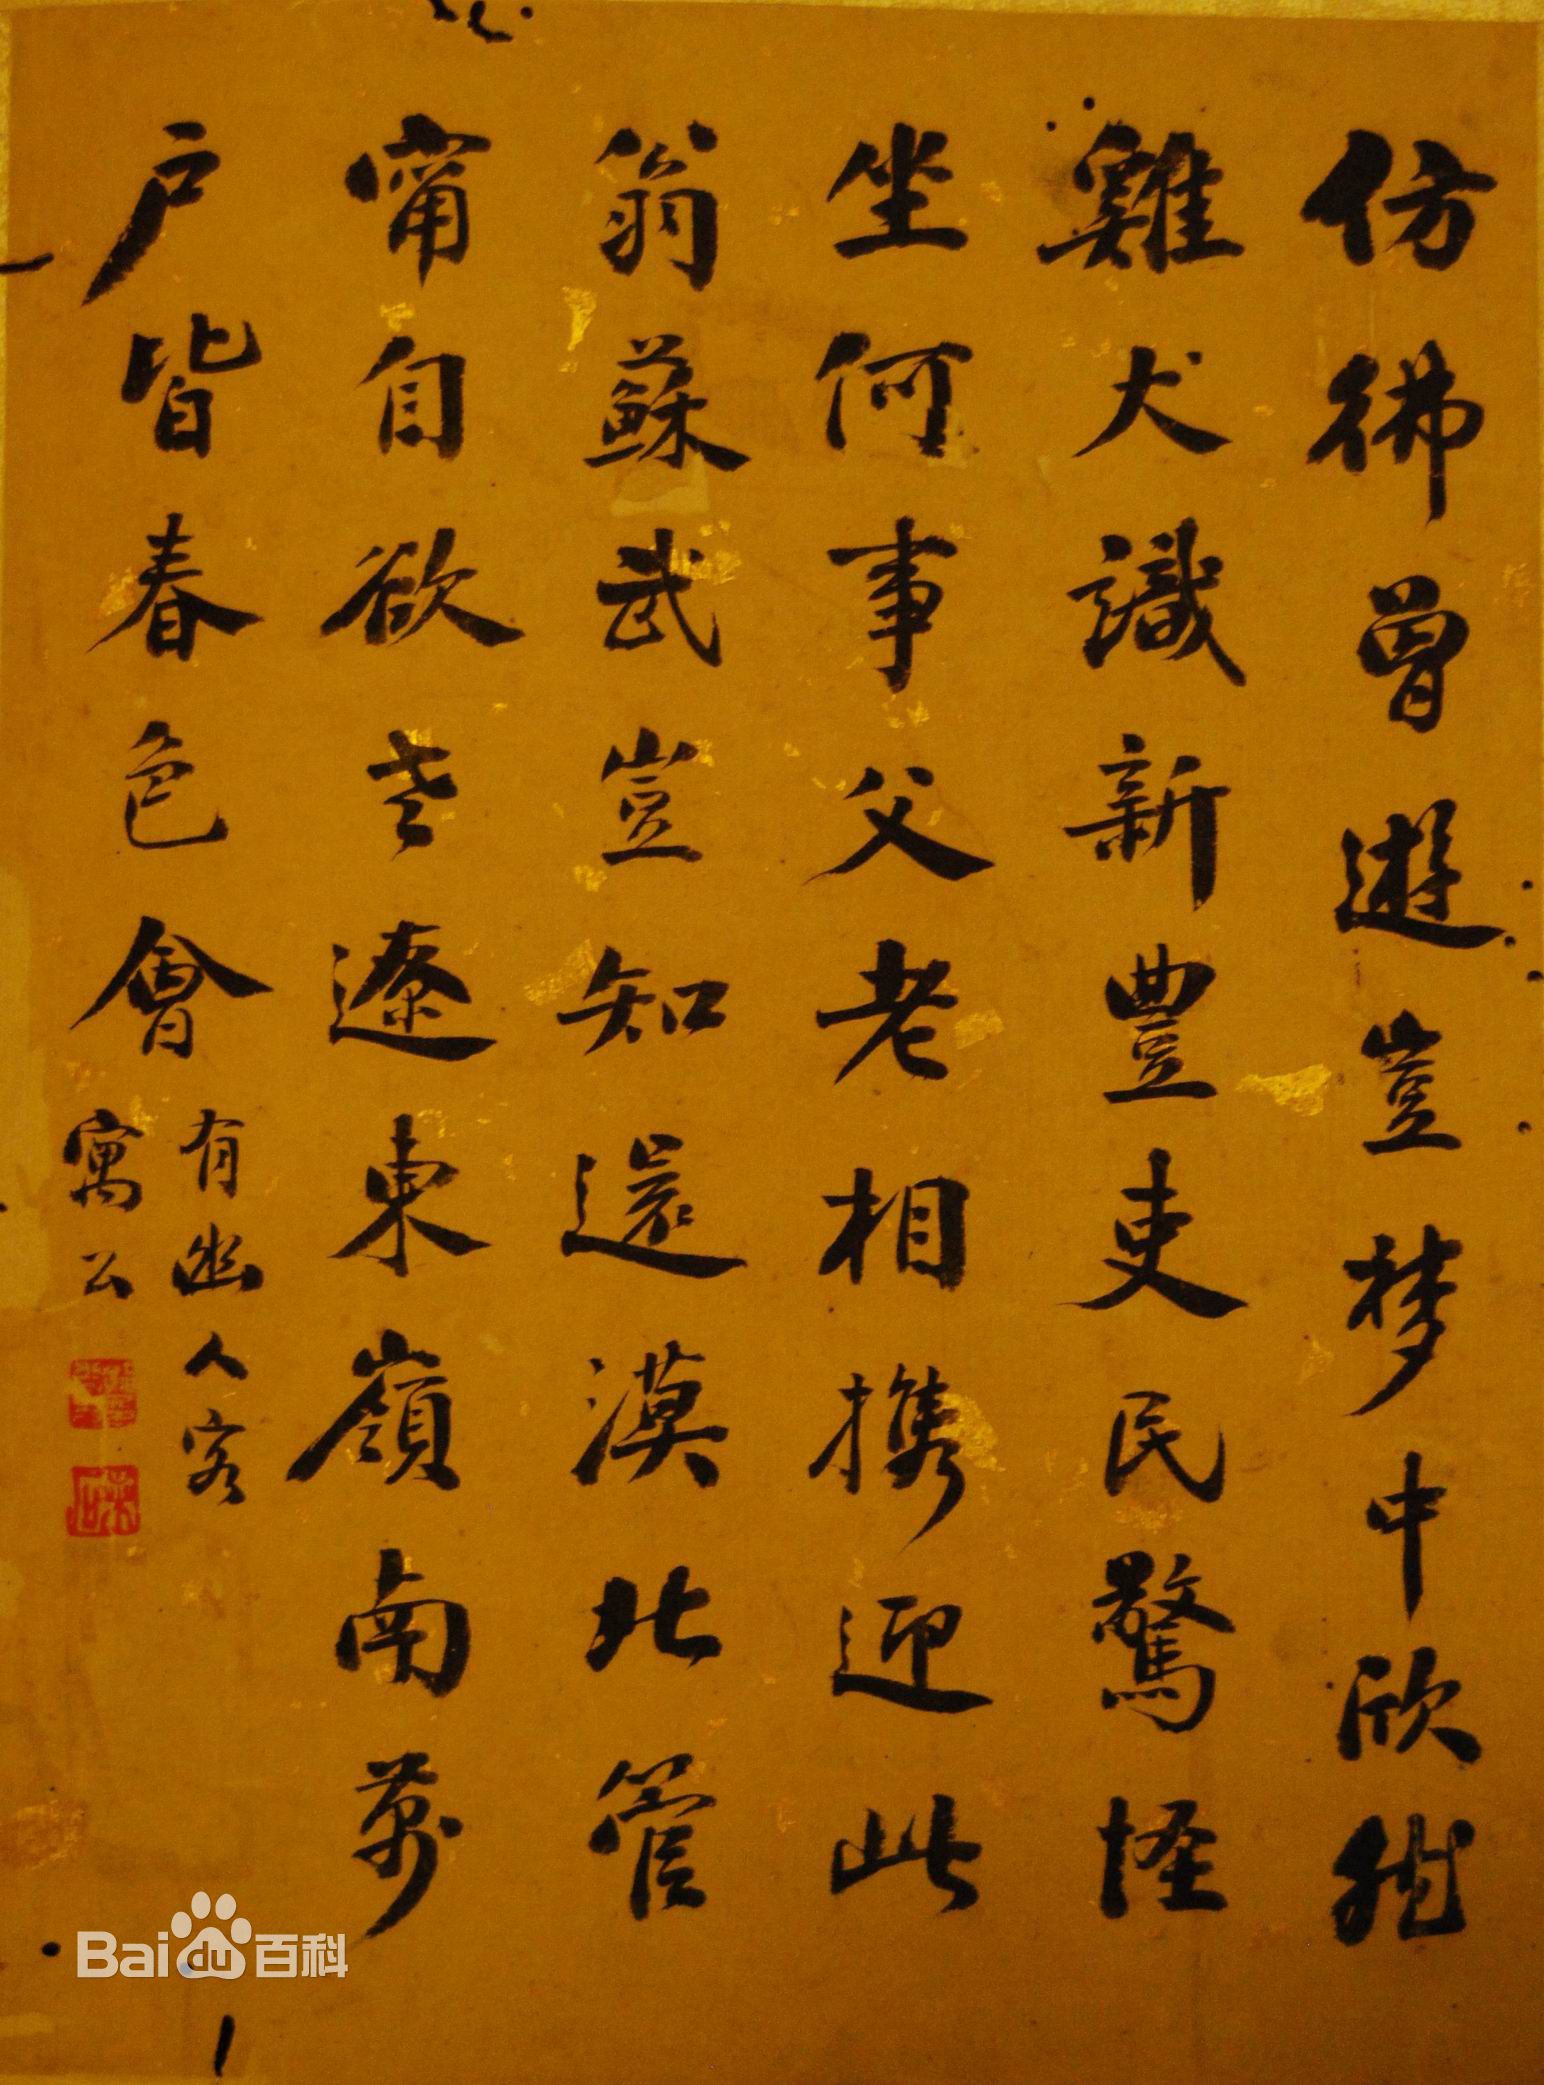 仿彿曾遊豈梦中欣然
雞犬識新豐吏民驚怪
坐何事父老相携迎此
翁蘇武豈知還漠北管
甯自欲老遼東嶺南萬
户皆春色會有幽人客
寓公
Bai du 百科